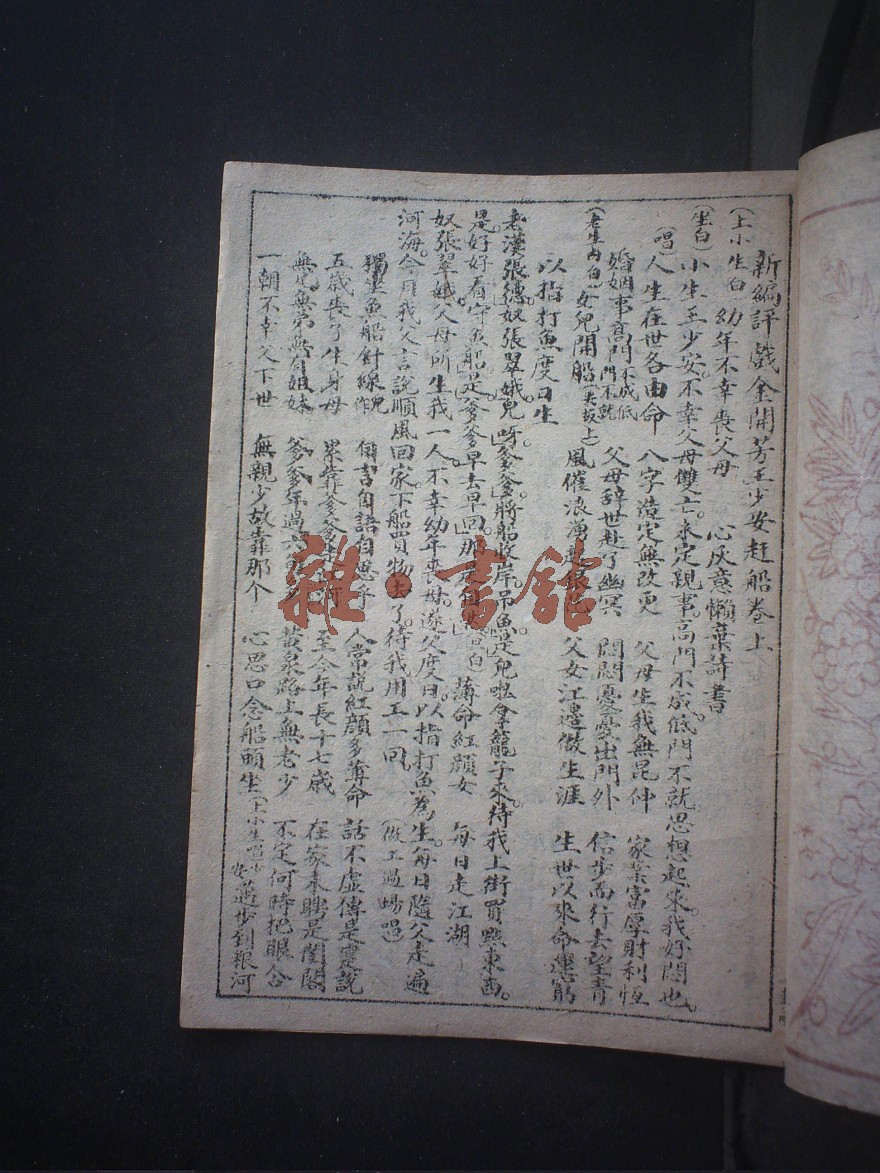 新編評戲金開芳王少安赶船卷上
(上小生白)幼年不幸喪父母 心灰意懶棄詩書
(坐白)小生王少安。不幸父母雙亡。未定親事。高門不成。低門不就。思想起來。我好悶也。
(唱)人生在世各由命 八字造定無改更 父母生我無昆仲 家業富厚財利恆
婚姻事高門不成低門不就 父母辞世赴了幽冥 悶悶憂憂出門外 信步而行去望青
(老生内白)女兒開船(尖板上)風催浪湧 父女江邊做生涯 生世以來命運窮
以指打魚度日生
老漢張德。奴張翠娥。兒呀。爹爹。將船收岸。吊魚。是。兒呀拿籃子來。待我上街買點東西。
是。好好看守魚船。是。爹爹早去早回。那是自然。白 薄命紅顔女 每日走江湖
奴張翠娥。父母所生我一人。不幸幼年喪母。逐父度日。以指打魚為生。每日隨父走遍
河海。今月我父言說順風回家。下船買物去了。待我用工一回。(做工過場唱)
獨坐魚船針線作 自言自語自思乎 人常說紅顔多薄命 話不虛傳是實說
五歲喪了生身母 累靠爹爹 至今年長十七歲 在家未聘是閨閣
無兄無弟無有姐妹 爹爹年過六 黄泉路上無老少 不定何時把眼合
一朝不幸父下世 無親少故靠那个 心思口念船頭坐(上小生唱)少安邁步到根河
雜·書館